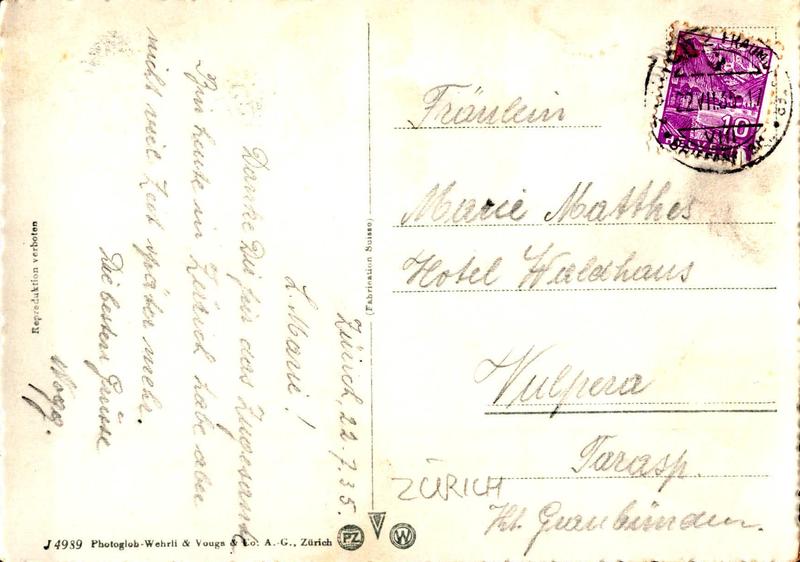 Zürich, 22.7.35.
L. Marie!
Danke Dir für das Zugesandte
Bin heute in Zürich habe aber
nicht viel Zeit später mehr.
Die besten Grüsse
Fräulein
Marie Matthes
Hotel Waldhaus
Vulpera
Tarasp.
Kt. Graubünden.
ZÜRICH
10
VIII
Reproduktion verboten
(Fabrication Suisse)
J 4989 Photoglob-Wehrli & Vouga & Co. A.-G., Zürich
PZ
W